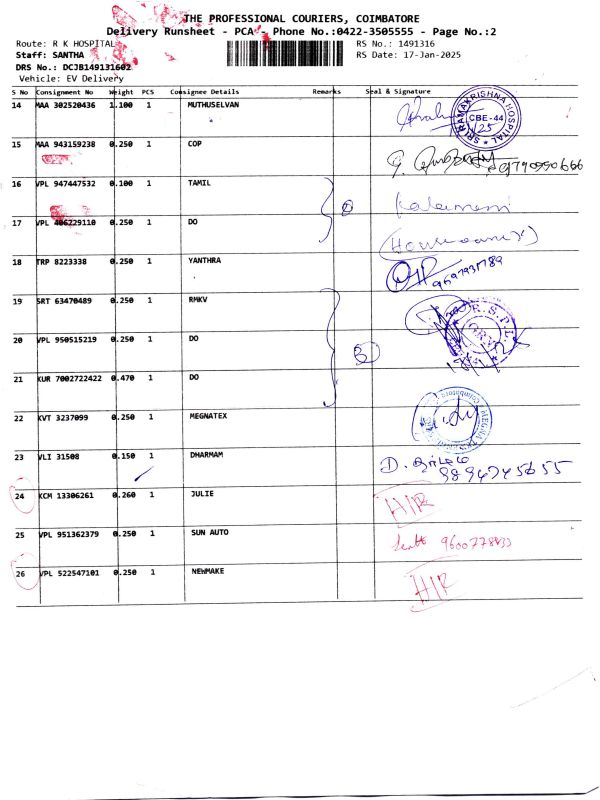 THE PROFESSIONAL COURIERS, COIMBATORE
Delivery Runsheet - PCA - Phone No.:0422-3505555 - Page No.:2
Route: R K HOSPITAL RS No.: 1491316
Staff: SANTHA RS Date: 17-Jan-2025
DRS No.: DCJB149131602
Vehicle: EV Delivery
S No Consignment No Weight PCS Consignee Details Remarks Seal & Signature
14 MAA 302520436 1.100 1 MUTHUSELVAN
SRI RAMAKRISHNA HOSPITAL CBE-44
15 MAA 943159238 0.250 1 COP
16 VPL 947447532 0.100 1 TAMIL
17 VPL 406729110 0.250 1 DO
18 TRP 8223338 0.250 1 YANTHRA
19 SRT 63470489 0.250 1 RMKV
20 VPL 950515219 0.250 1 DO
3
21 KUR 7002722422 0.470 1 DO
22 KVT 3237099 0.250 1 MEGNATEX
23 VLI 31508 0.150 1 DHARMAM
9894745655
24 KCM 13306261 0.260 1 JULIE
HIR
25 VPL 951362379 0.250 1 SUN AUTO
26 VPL 522547101 0.250 1 NEWMAKE
HIR